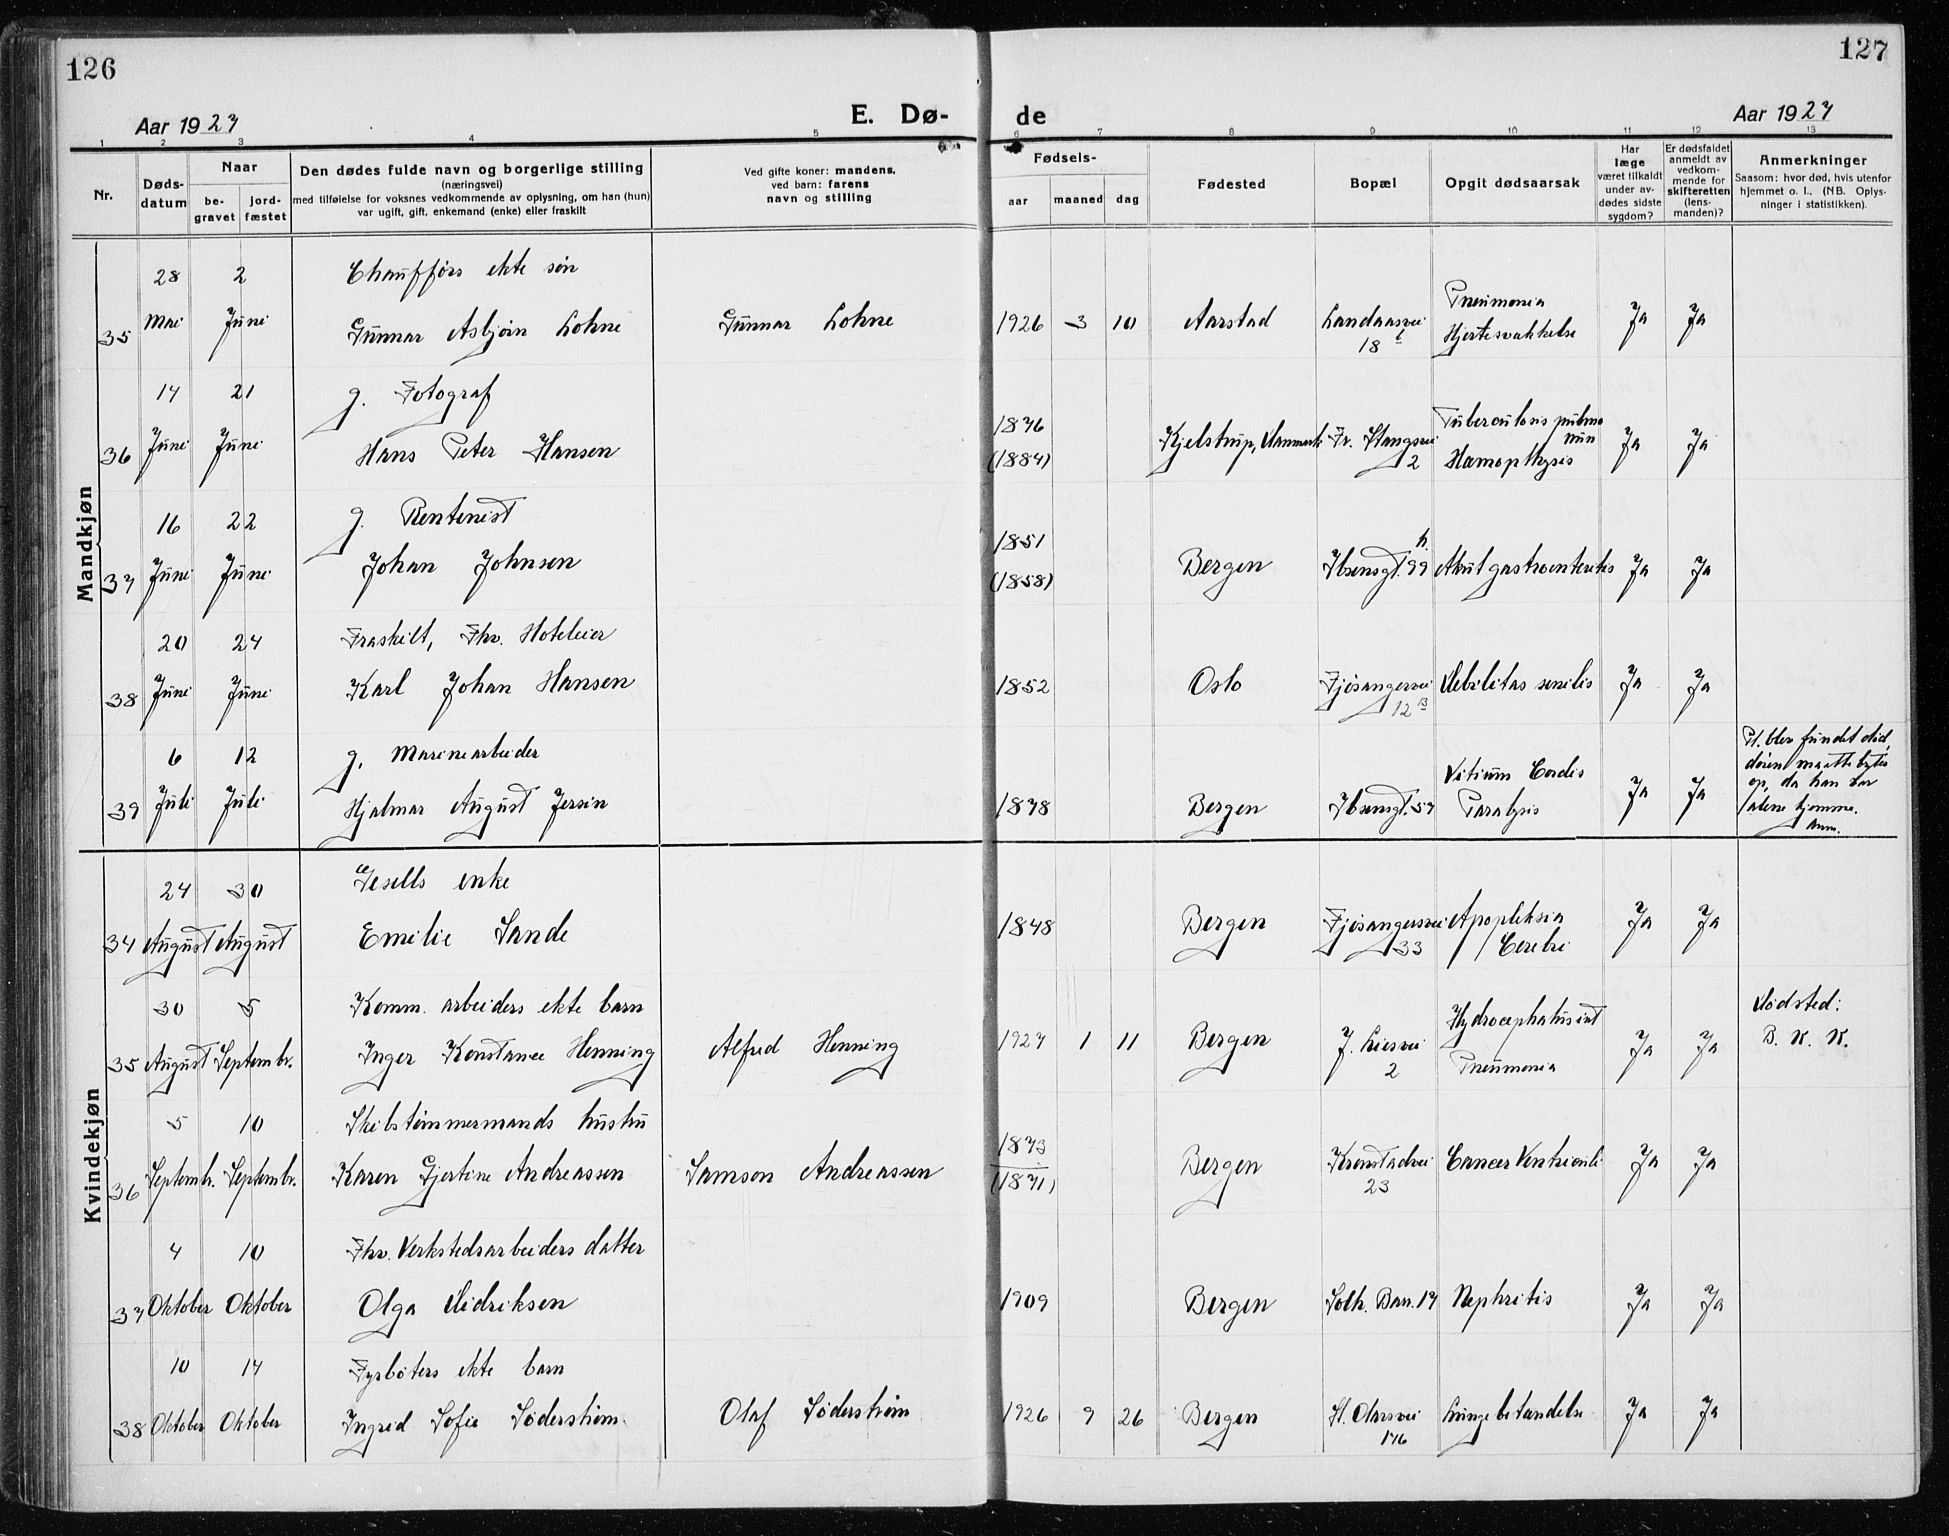 126
127
Aar 1927
E. Dø-
de
Aar 1927
1 2 3 4 5 6 7 8 9 10 11 12 13
Nr.
Døds-
datum
Naar
be-
gravet
jord-
fæstet
Den dødes fulde navn og borgerlige stilling
(næringsvei)
med tilføielse for voksnes vedkommende av oplysning, om han (hun)
var ugift, gift, enkemand (enke) eller fraskilt
Ved gifte koner: mandens,
ved barn: farens
navn og stilling
Fødsels-
aar
maaned
dag
Fødested
Bopæl
Opgit dødsaarsak
Har
læge
været tilkaldt
under av-
dødes sidste
sygdom?
Er dødsfaldet
anmeldt av
vedkom-
mende for
skifteretten
(lens-
manden)?
Anmerkninger
Saasom: hvor død, hvis utenfor
hjemmet o. l., (NB. Oplys-
ninger i statistikken).
Mandkjøn
28 2 Chaufførs ekte søn Pneumonia
35 Mai Juni Gunnar Asbjørn Lohne Gunnar Lohne 1926 3 10 Aarstad Landaasvei Hjertesvakkelse Ja Ja
18
14 21 g. Fotograf 1876 Tuberculosis pulmo
num
36 Juni Juni Hans Peter Hansen (1884) Kjelstrup, Danmark Fr. Stangsvei Hæmopthysis Ja Ja
2
16 22 g. Rentenist 1851 h.
37 Juni Juni Johan Johnsen (1858) Bergen Ibsensgt. 99 Akut gastroenteritis Ja Ja
20 24 Fraskilt, Fhv. Hoteleier
38 Juni Juni Karl Johan Hansen 1852 Oslo Fjøsangervei Debilitas senilis Ja Ja
12 B
6 12 g. Marinearbeider Vitium Cordis
39 Juli Juli Hjalmar August Jersin 1878 Bergen Ibsensgt. 57 Paralysis Ja Ja
Pt. blev fundet død,
døren maatte brytes
op, da han var
alene hjemme.
Anm.
Kvindekjøn
24 30 Gesells enke
34 August August Emilie Sande 1848 Bergen Fjøsangervei Apopleksia Ja Ja
33 Cerebri
30 5 Komm. arbeiders ekte barn Hydrocephalus int Dødsted:
35 August Septembr. Inger Konstance Henning Alfred Henning 1927 1 11 Bergen J. Liesvei Pneumonia Ja Ja B. K. K.
2
5 10 Skibstømmermands hustru 1873
36 Septembr. Septembr. Karen Gjertine Andreassen Samson Andreassen (1871) Bergen Kronstadvei Cancer Ventriculi Ja Ja
23
4 10 Fhv. Verkstedsarbeiders datter
37 Oktober Oktober Olga Didriksen 1909 Bergen Solh. Bar. 17 Nephritis Ja Ja
10 14 Fyrbøters ekte barn
38 Oktober Oktober Ingrid Sofie Söderstrøm Olaf Söderstrøm 1926 9 26 Bergen St. Olavsvei Lungebetændelse Ja Ja